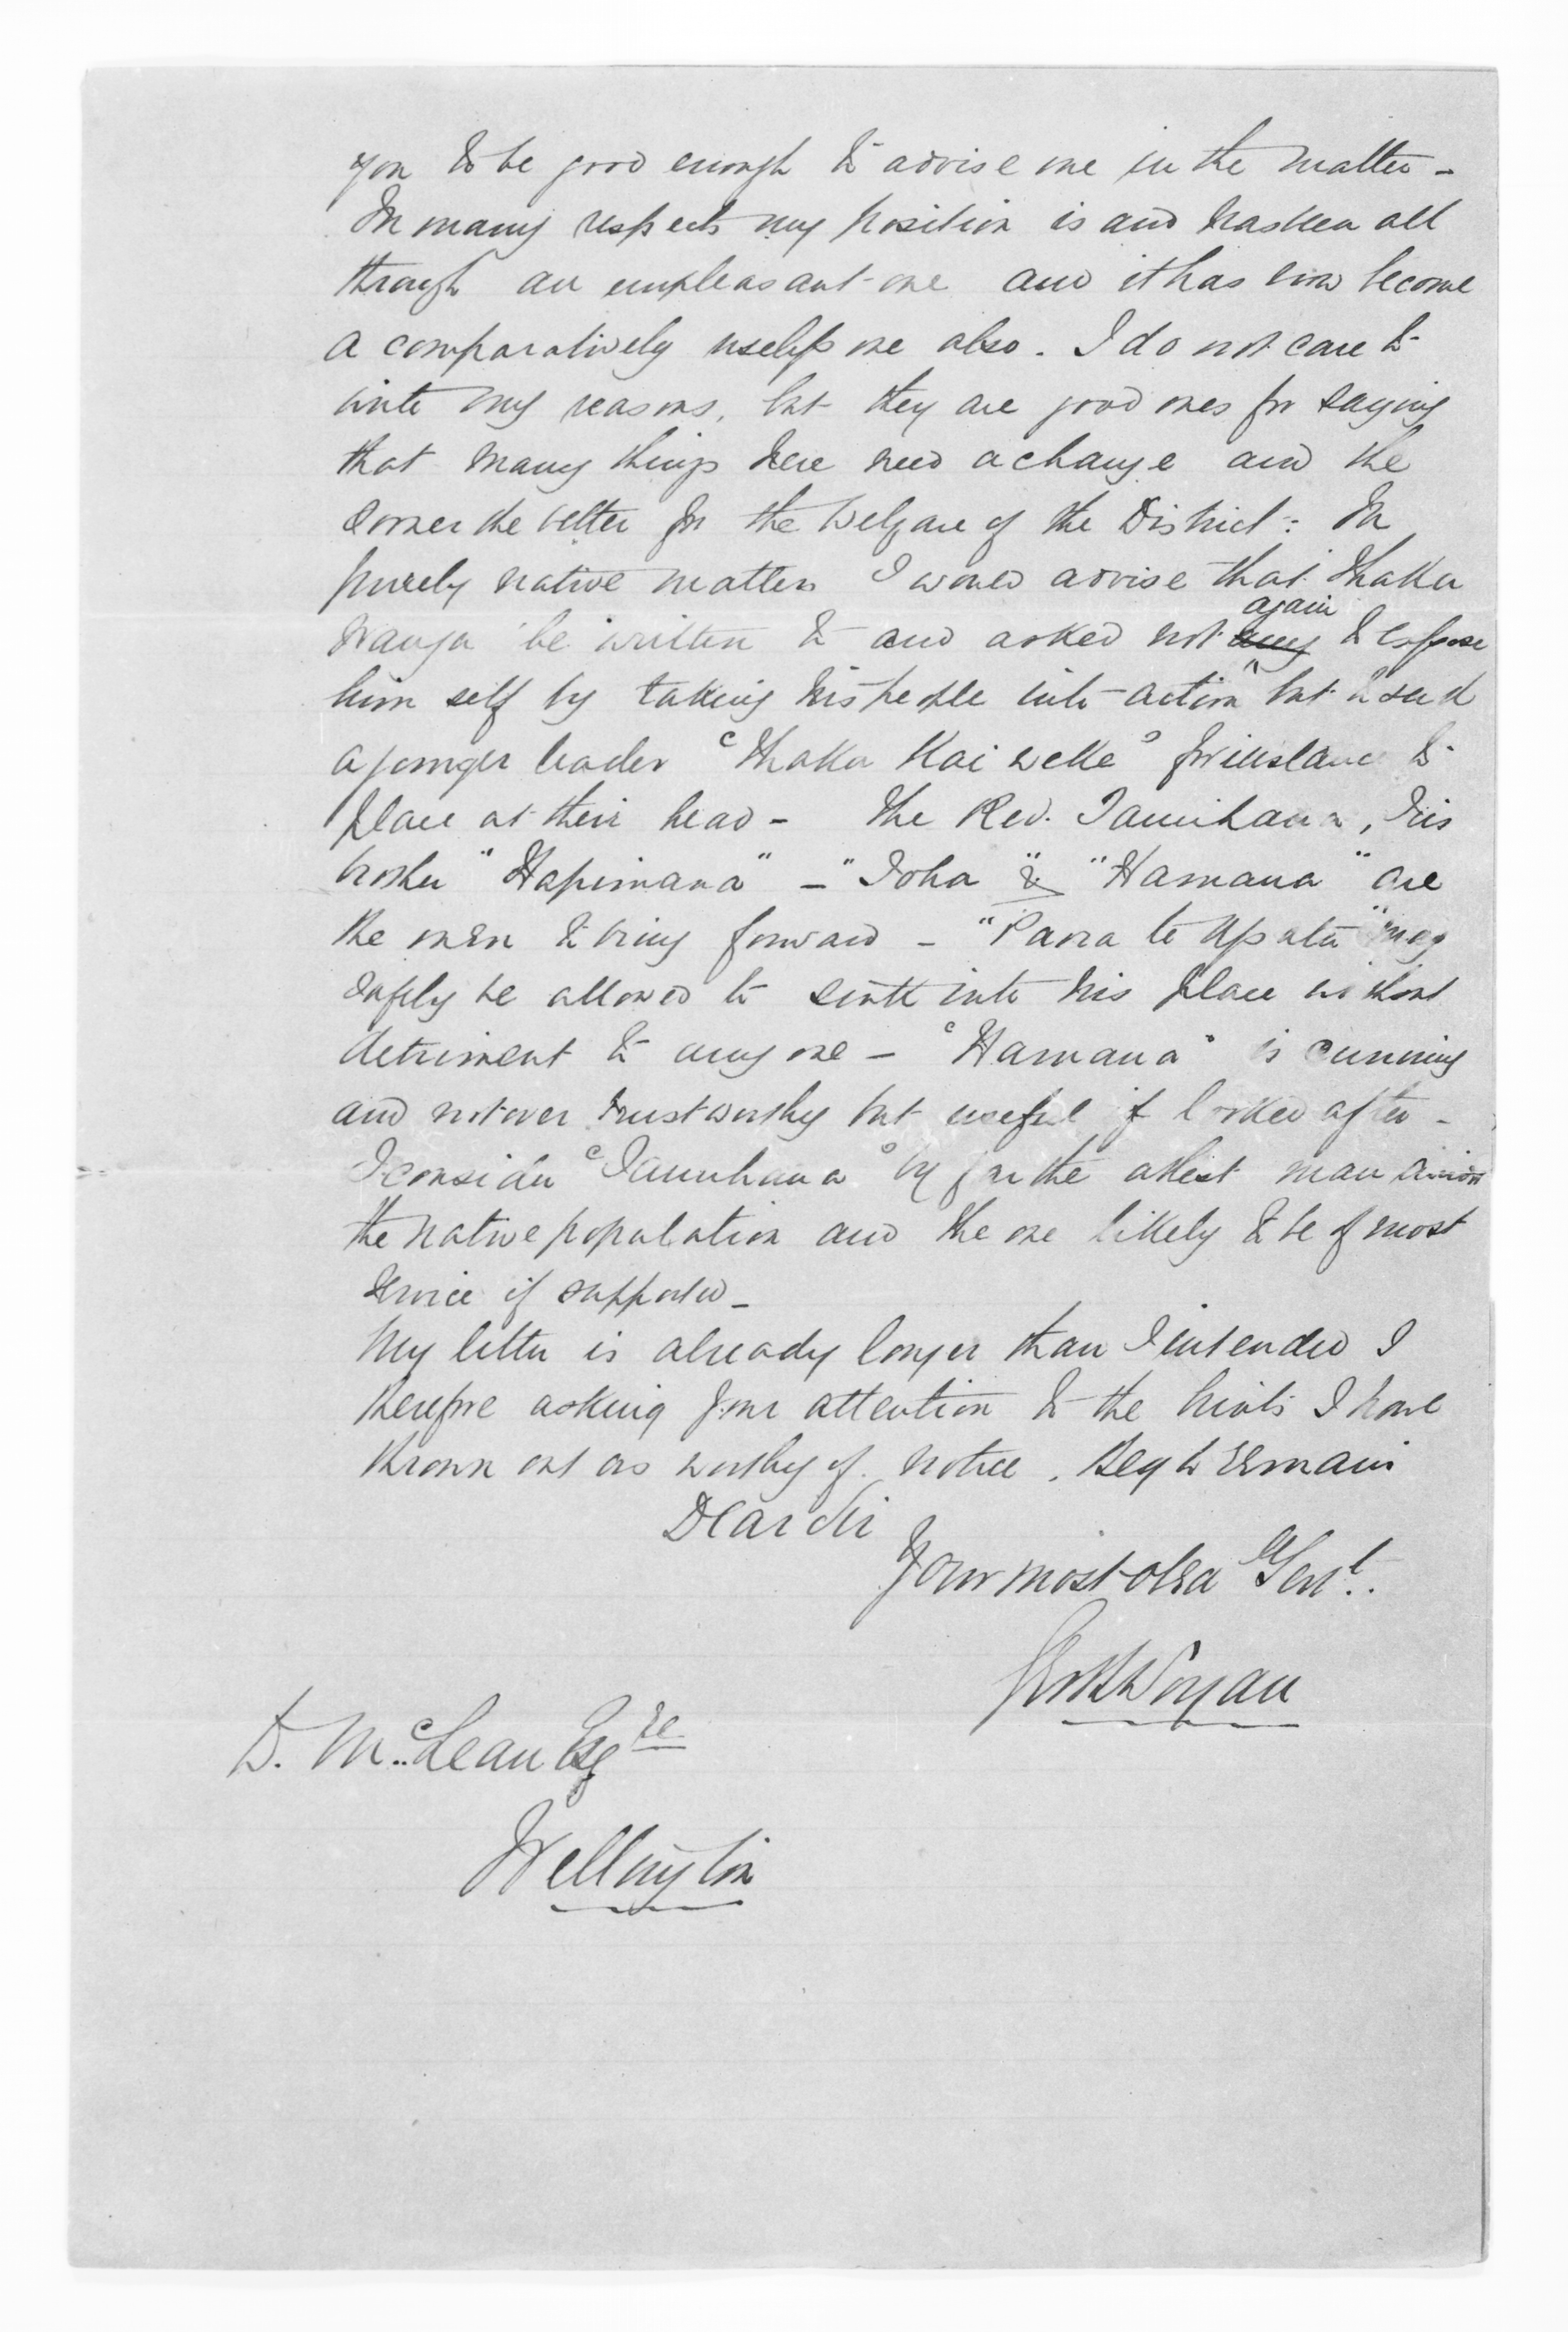 you to be good enough to advise me in the matter -
In many respects my position is and has been all
through an unpleasant one and it has now become
a comparatively useless one also. I do not care to
write my reasons, but they are good ones for saying
that many things here need a change and the
sooner the better for the welfare of the District: In
purely native matters I would advise that Ihaka
Wanga be written to and asked not any again to expose
him self by taking his people into action but to send
a younger leader "Ihaka Kai weke" for instance to
place at their head - The Rev. Tamihana, his
brother "Hapimana" - "Ioha" & "Hamana" are
the men to bring forward - "Paora te Apatu" may
safely be allowed to sink into his place without
detriment to any one - "Hamana" is cunning
and not over trustworthy but useful if looked after -
I consider "Tamihana" by far the ablest man among
the native population and the one likely to be of most
service if supported -
My letter is already longer than I intended I
therefore asking your attention to the hints I have
thrown out as worthy of notice. Beg to remain
Dear Sir
Your most obed Servt.
D. McLean Esqre
Wellington